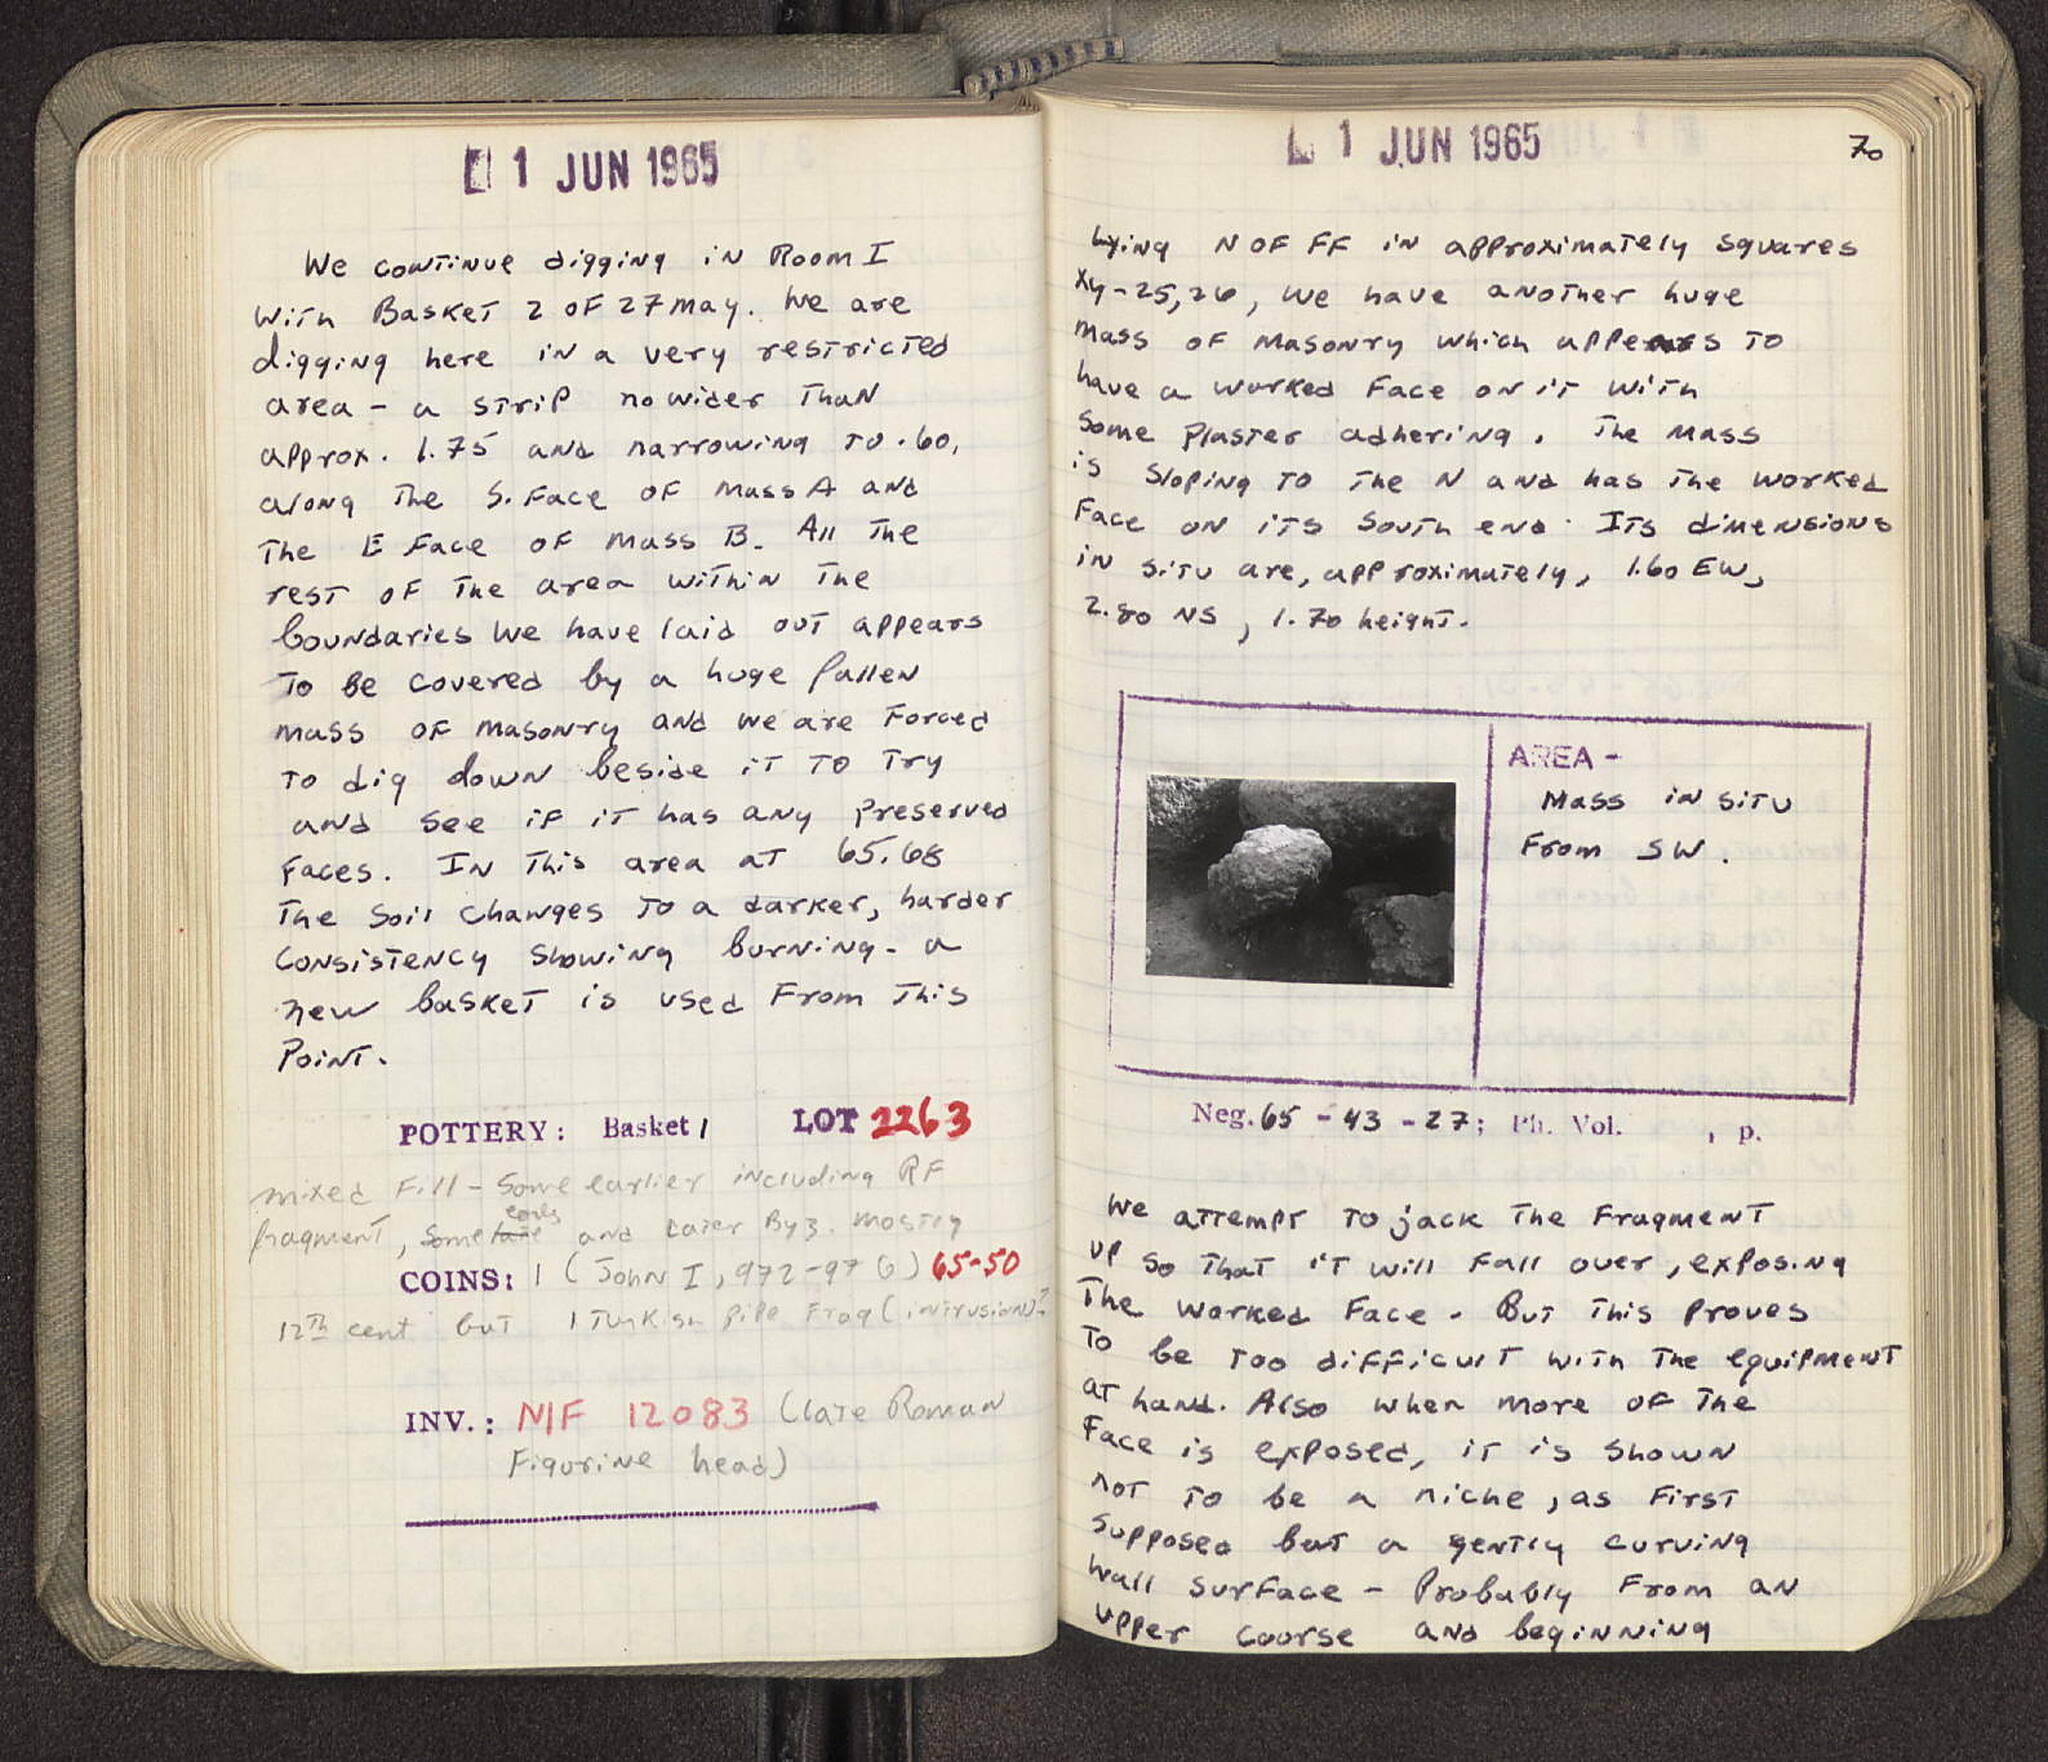 1 JUN 1965
We continue digging in Room I
with Basket 2 of 27 May. We are
digging here in a very restricted
area - a strip no wider than
approx. 1.75 and narrowing to .60,
along the S. Face of Mass A and
the E Face of Mass B. All the
rest of the area within the
boundaries we have laid out appears
to be covered by a huge fallen
mass of masonry and we are forced
to dig down beside it to try
and see if it has any preserved
faces. In this area at 65.68
the soil changes to a darker, harder
consistency showing burning - a
new basket is used from this
point.
POTTERY: Basket 1 LOT 2263
mixed fill - Some earlier including RF
early
fragment, some late and later Byz. mostly
COINS: 1 (John I, 972-976) 65-50
12th cent but 1 Turkish pipe frag (intrusion)?
INV.: NIF 12083 (late Roman
Figurine head)
1 JUN 1965
70
Lying N of FF in approximately squares
XY-25,26, we have another huge
mass of masonry which appears to
have a worked face on it with
some plaster adhering. The mass
is sloping to the N and has the worked
face on its south end. Its dimensions
in situ are, approximately, 1.60 EW,
2.80 NS, 1.70 height.
AREA -
Mass in situ
From SW.
Neg. 65 - 43 - 27; Ph. Vol. , p.
We attempt to jack the fragment
up so that it will fall over, exposing
the worked face - But this proves
to be too difficult with the equipment
at hand. Also when more of the
face is exposed, it is shown
not to be a niche, as first
supposed but a gently curving
wall surface - Probably from an
upper course and beginning